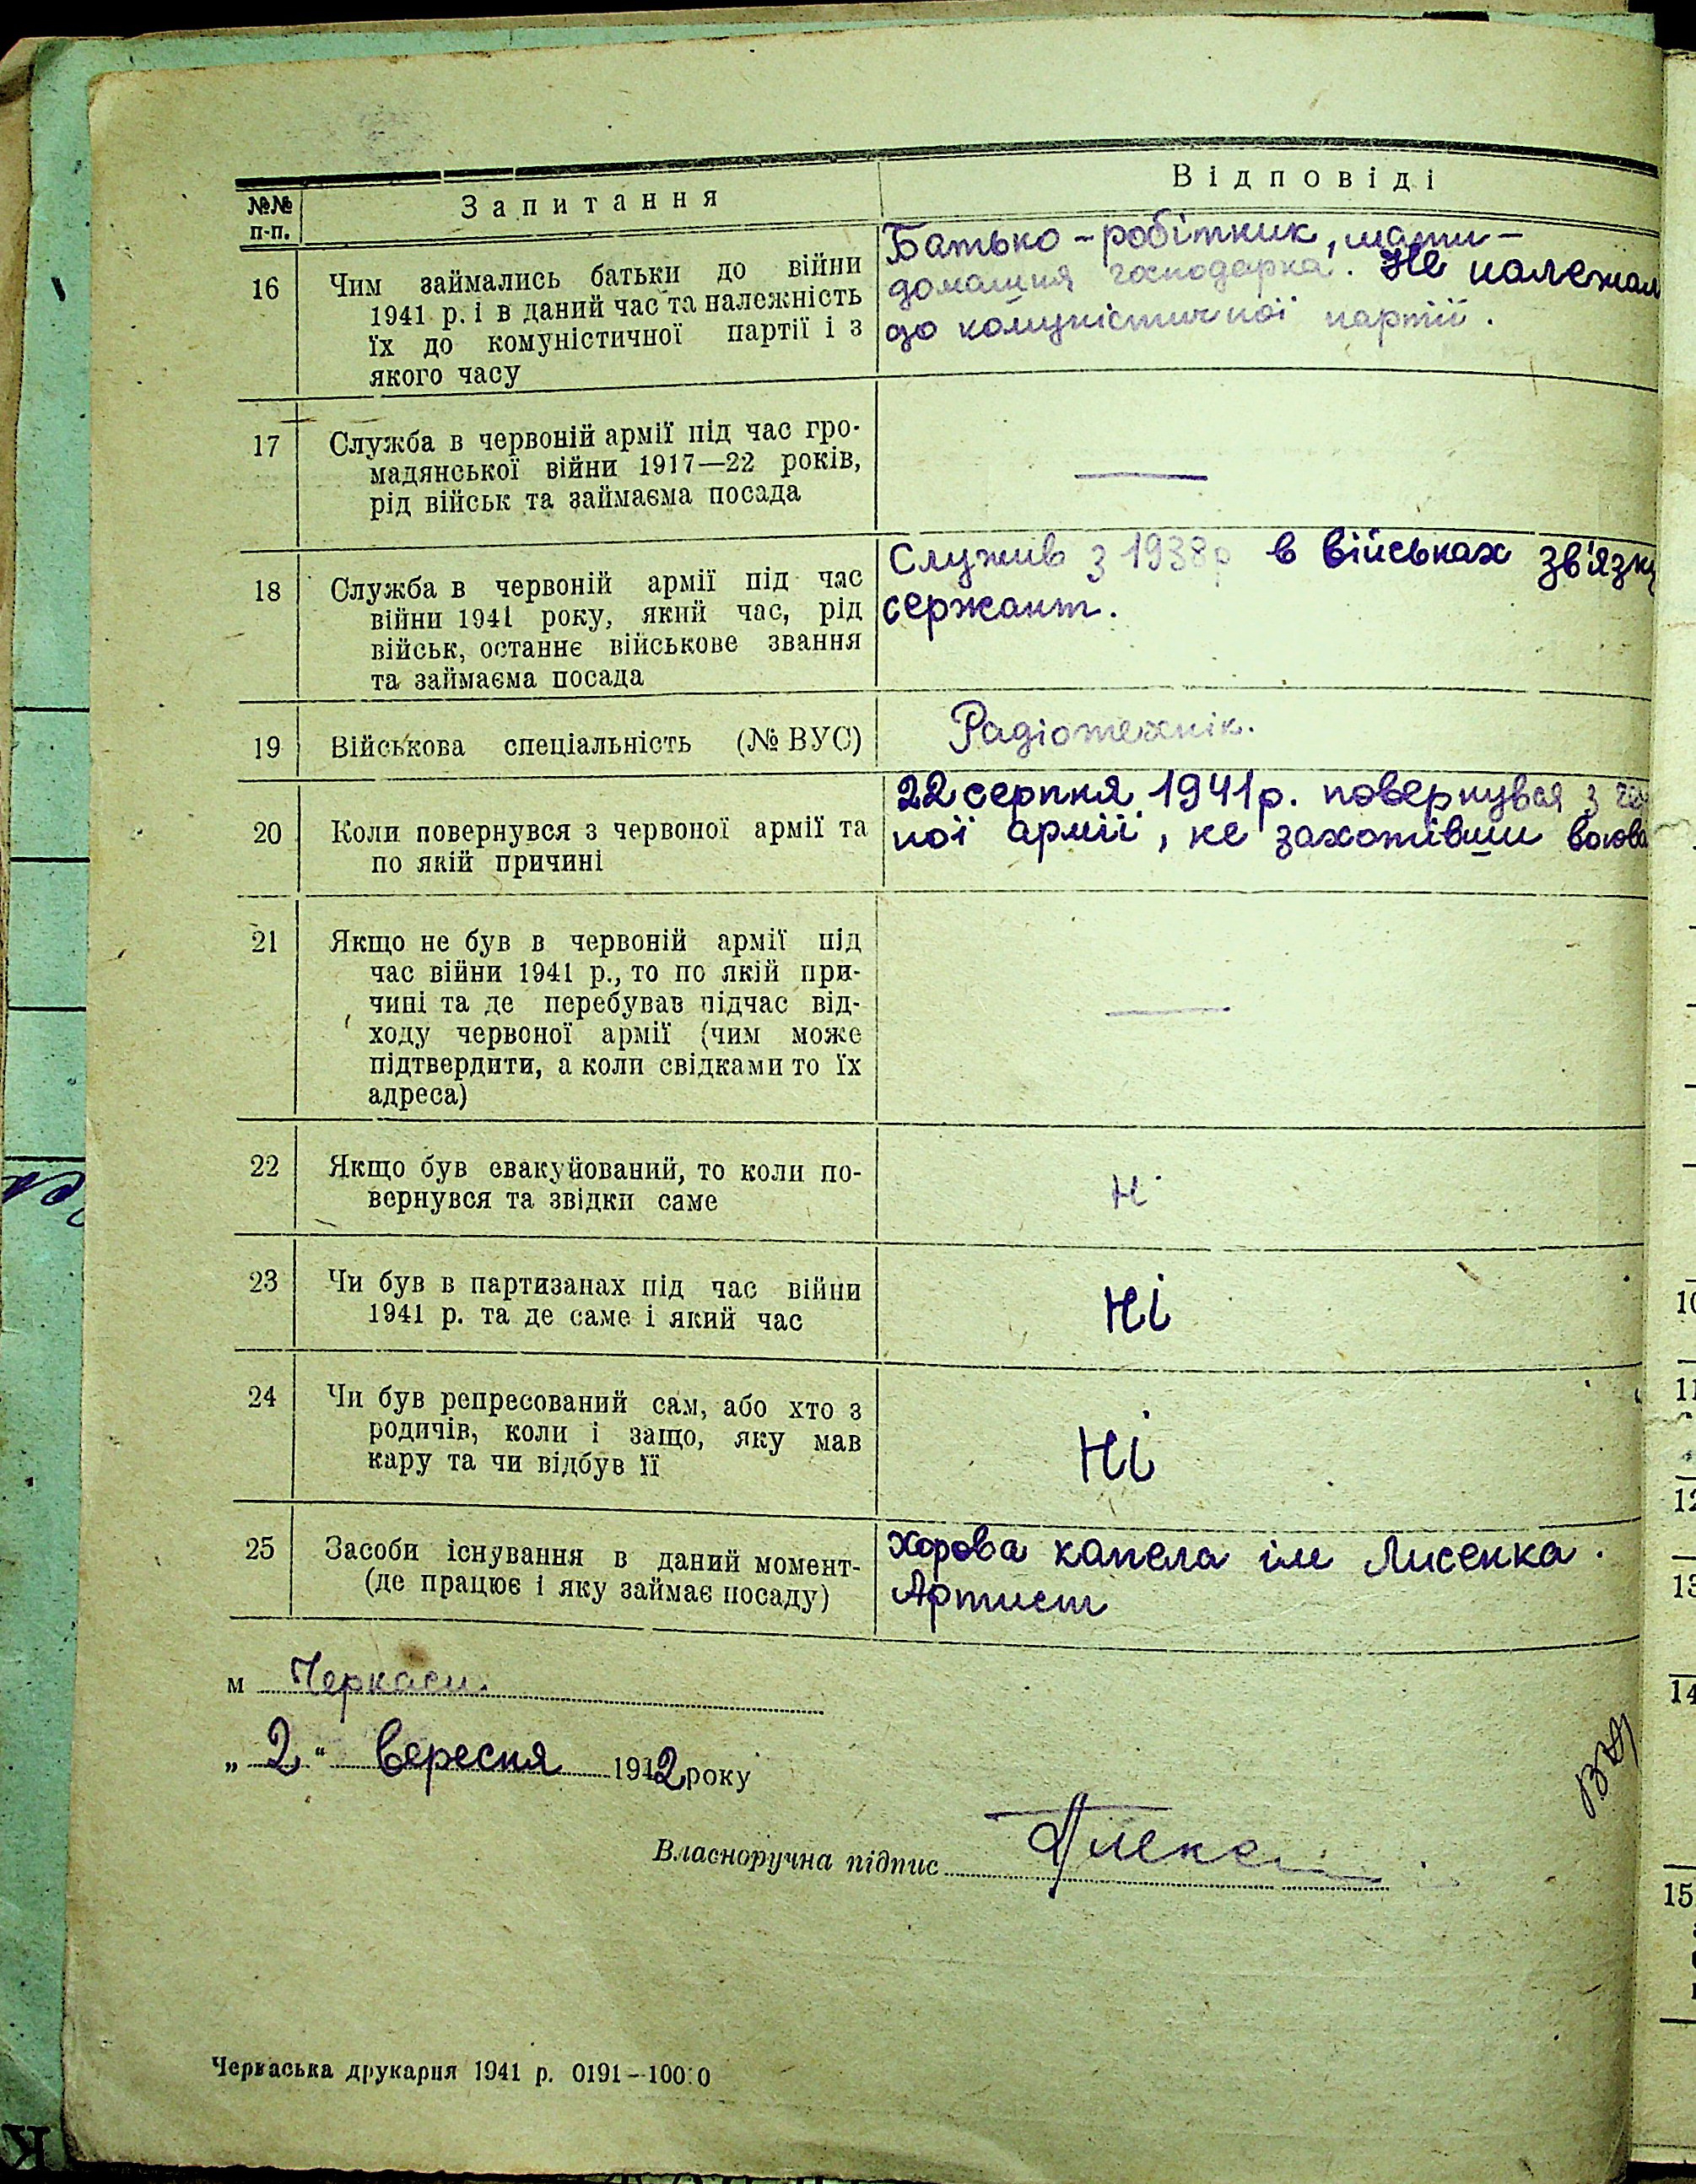 №№ п-п.
Запитання
Відповіді
16
Чим займались батьки до війни
1941 р. і в даний час та належність
їх до комуністичної партії і з
якого часу
Батько - робітник, мати -
домашня господарка. Не належал
до комуністичної партії.
17
Служба в червоній армії під час гро-
мадянської війни 1917—22 років,
рід військ та займаєма посада
—
18
Служба в червоній армії під час
війни 1941 року, який час, рід
військ, останнє військове звання
та займаєма посада
Служив з 1938р в військах зв'язку
сержант.
19
Військова спеціальність (№ ВУС)
Радіотехнік.
20
Коли повернувся з червоної армії та
по якій причині
22 серпня 1941р. повернувся з че
ної армії, не захотівши воюва
21
Якщо не був в червоній армії під
час війни 1941 р., то по якій при-
чині та де перебував підчас від-
ходу червоної армії (чим може
підтвердити, а коли свідками то їх
адреса)
—
22
Якщо був евакуйований, то коли по-
вернувся та звідки саме
Ні
23
Чи був в партизанах під час війни
1941 р. та де саме і який час
Ні
24
Чи був репресований сам, або хто з
родичів, коли і защо, яку мав
кару та чи відбув її
Ні
25
Засоби існування в даний момент-
(де працює і яку займає посаду)
Хорова капела ім Лисенка.
Артист
м Черкаси
„2“ вересня 1942 року
Власноручна підпис
Черкаська друкарня 1941 р. 0191—10000
10
11
12
13
14
15